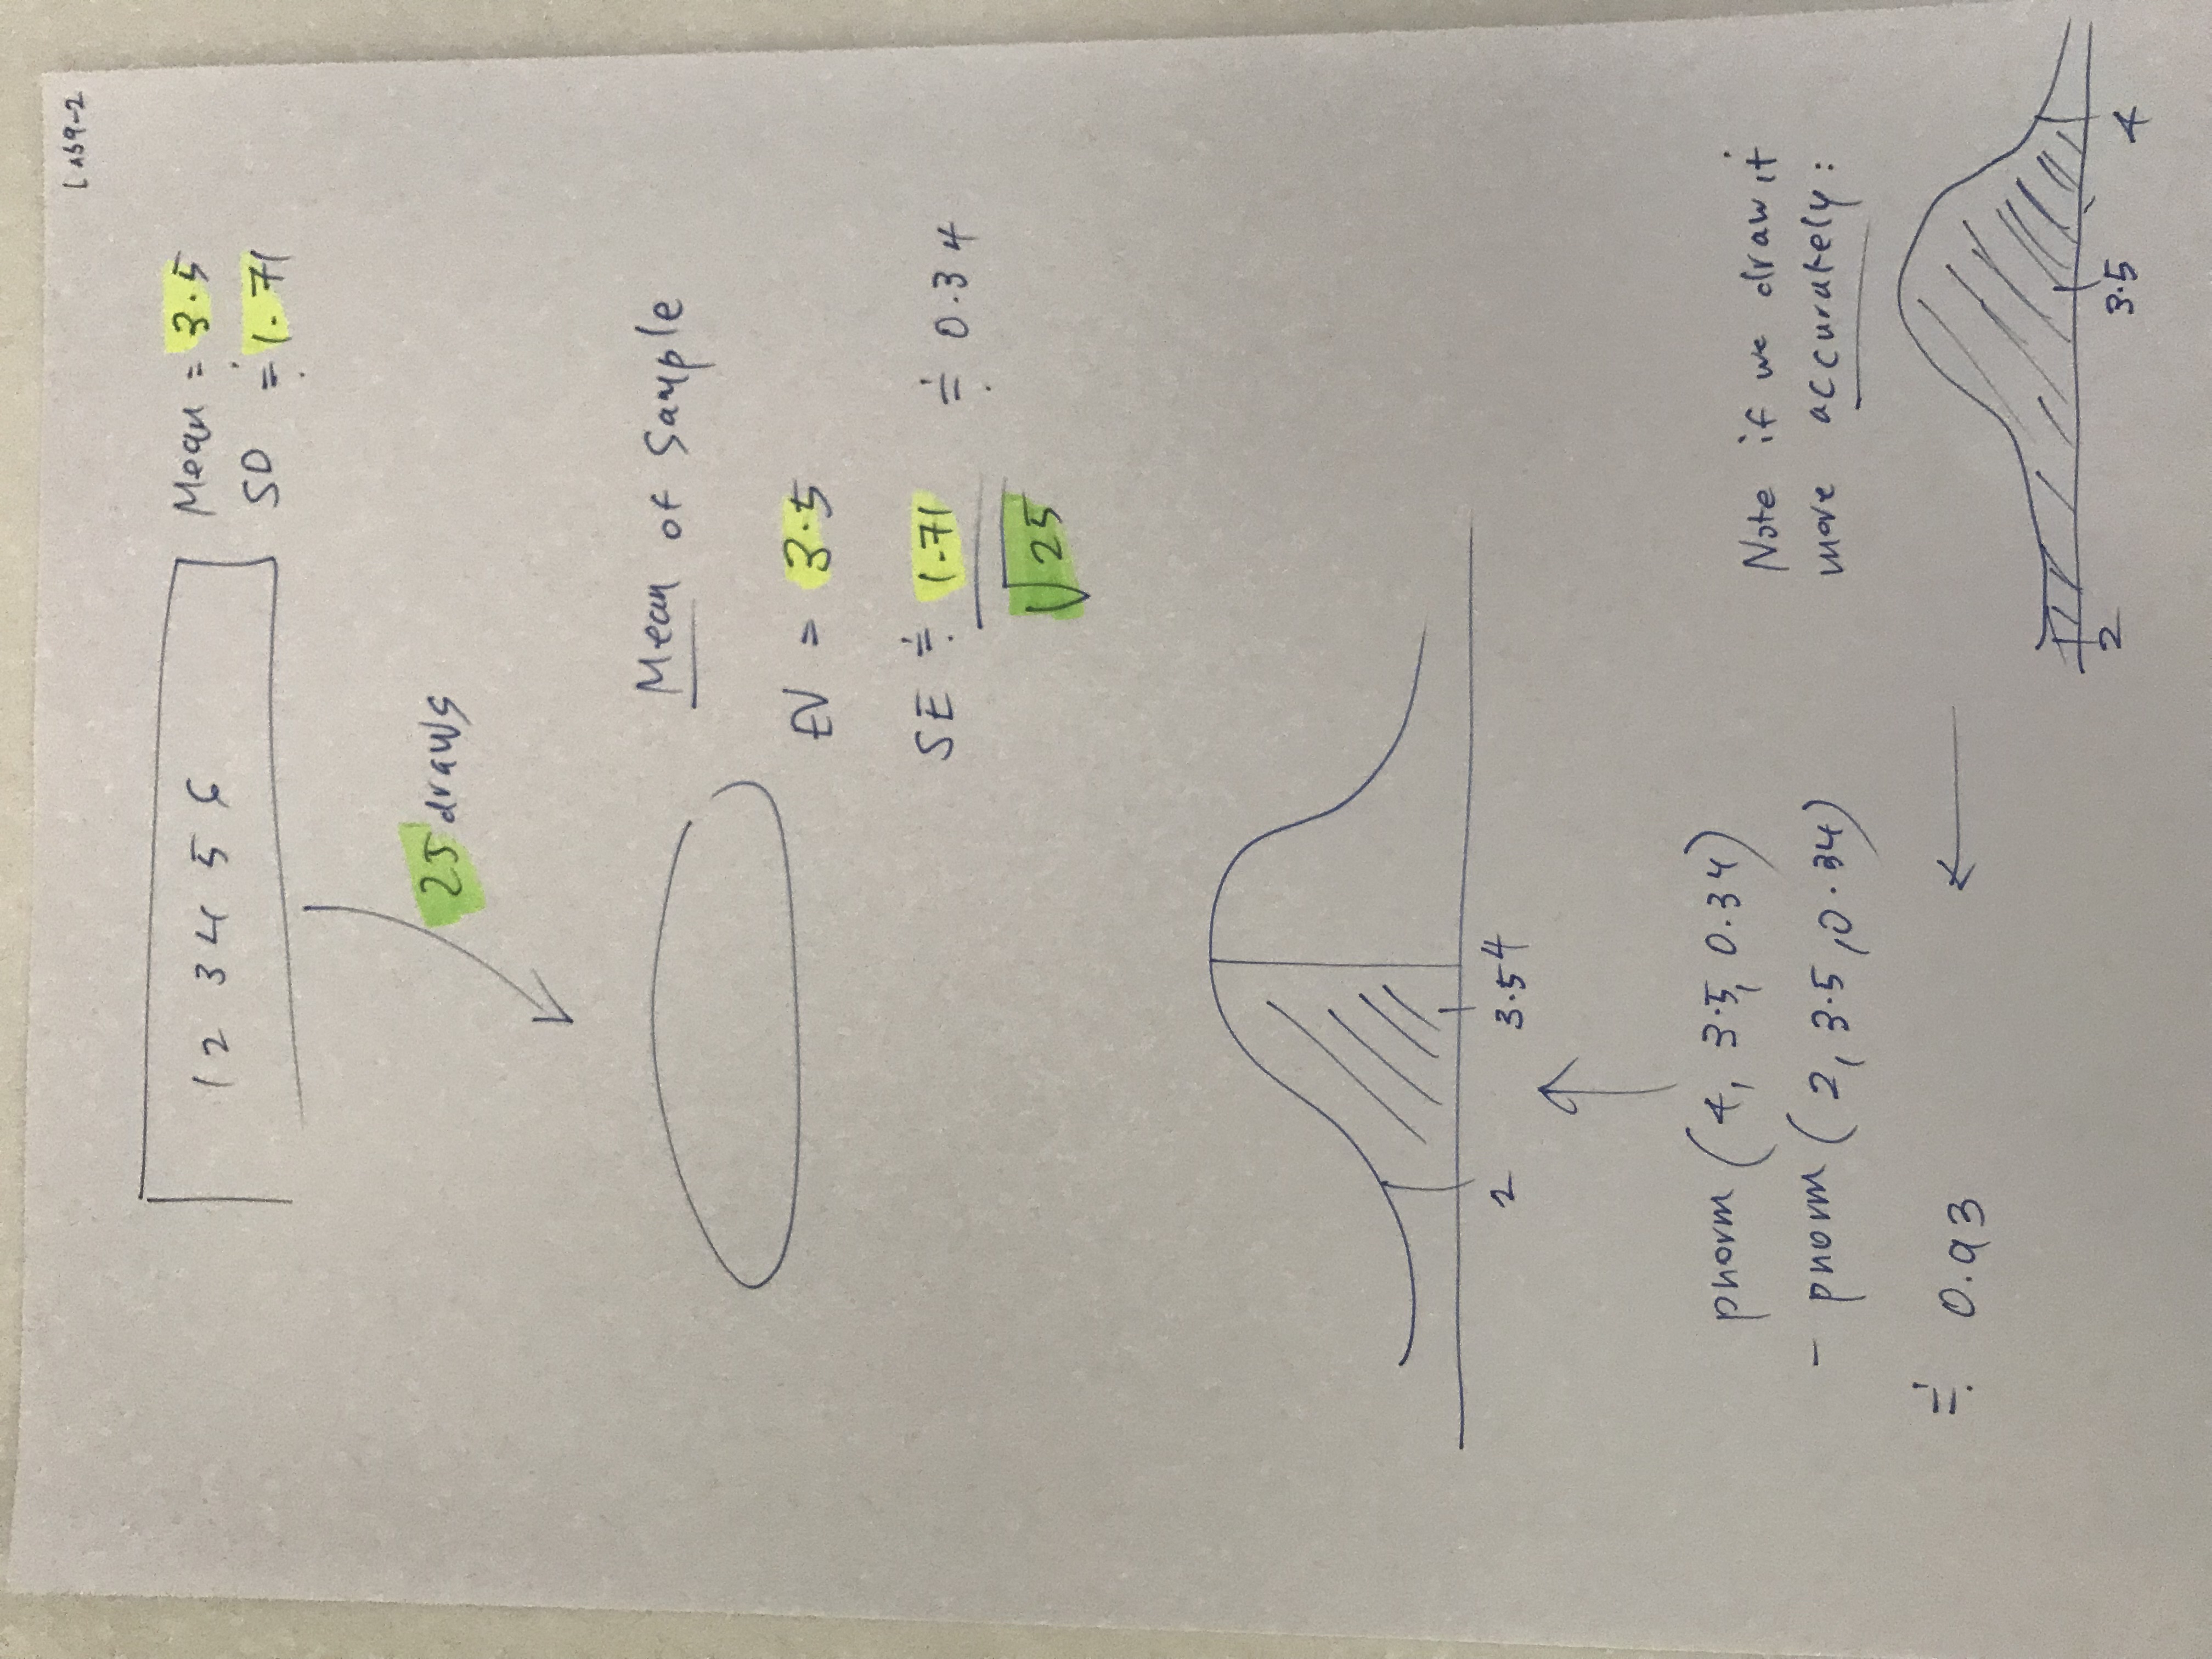 Lab9-2
1 2 3 4 5 6
Mean = 3.5
SD ≑ 1.71
25 draws
Mean of Sample
EV = 3.5
SE ≑ 1.71 / √25 ≑ 0.34
2 3.5 4
pnorm (4, 3.5, 0.34)
- pnorm (2, 3.5, 0.34)
≑ 0.93
Note if we draw it
more accurately:
2 3.5 4